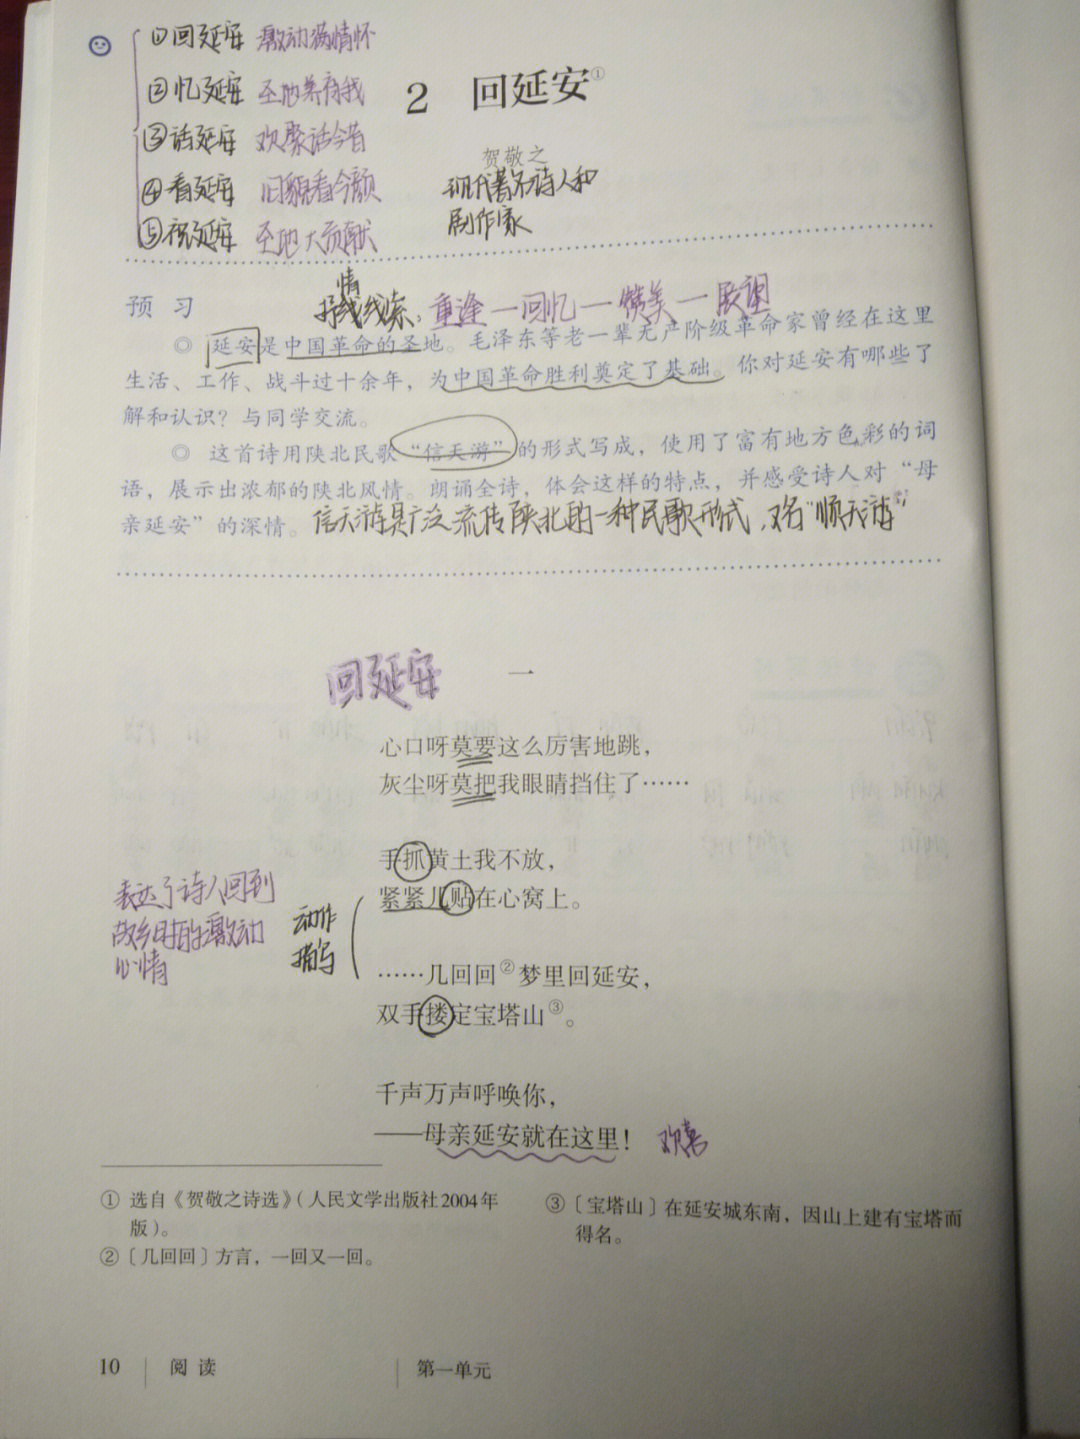 ①回延安 激动满情怀
②忆延安 圣地养育我
③话延安 欢聚话今昔
④看延安 旧貌看今颜
⑤祝延安 圣地大贡献
2 回延安①
贺敬之
现代著名诗人和
剧作家
预 习
抒情线索：重逢—回忆—赞美—展望
◎ 延安是中国革命的圣地。毛泽东等老一辈无产阶级革命家曾经在这里
生活、工作、战斗过十余年，为中国革命胜利奠定了基础。你对延安有哪些了
解和认识？与同学交流。
◎ 这首诗用陕北民歌“信天游”的形式写成，使用了富有地方色彩的词
语，展示出浓郁的陕北风情。朗诵全诗，体会这样的特点，并感受诗人对“母
亲延安”的深情。
信天游是广泛流传陕北的一种民歌形式，又名“顺天游”
回延安
一
心口呀莫要这么厉害地跳，
灰尘呀莫把我眼睛挡住了……
手抓黄土我不放，
紧紧儿贴在心窝上。
表达了诗人回到
故乡时的激动
心情
动作
描写
……几回回②梦里回延安，
双手搂定宝塔山③。
千声万声呼唤你，
——母亲延安就在这里！
欢喜
① 选自《贺敬之诗选》（人民文学出版社2004年
版）。
②〔几回回〕方言，一回又一回。
③〔宝塔山〕在延安城东南，因山上建有宝塔而
得名。
10 阅 读 第一单元